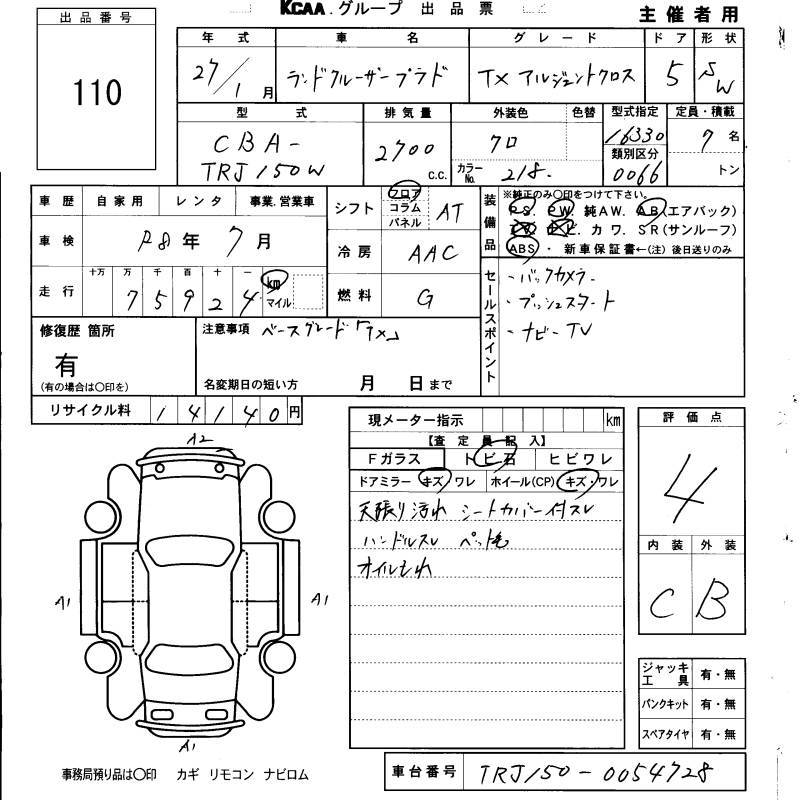 KCAA.グループ 出品票
主催者用
出品番号
110
年式 車名 グレード ドア 形状
27/1月 ランドクルーザープラド TX アルジェントクロス 5 SW
型式 排気量 外装色 色替 型式指定 定員・積載
CBA- TRJ150W 2700 c.c. クロ 16330 7名
カラーNo. 218. 類別区分 0066 トン
車歴 自家用 レンタ 事業.営業車
シフト フロア コラム パネル AT
装備品 ※純正のみ〇印をつけて下さい。
PS. PW. 純AW. AB(エアバック)
カワ. SR(サンルーフ)
ABS・ 新車保証書←(注)後日送りのみ
車検 R8年 7月
冷房 AAC
走行 十万 万 千 百 十 一
75924 km マイル
燃料 G
セールスポイント
・バックカメラ
・プッシュスタート
・ナビーTV
修復歴 箇所
有
(有の場合は〇印を)
注意事項 ベースグレード「TX」
名変期日の短い方 月 日まで
リサイクル料 14140円
現メーター指示 km
【査定員記入】
Fガラス トビ石 ヒビワレ
ドアミラー キズ/ワレ ホイール(CP) キズ・ワレ
天張り汚れ シートカバー付スレ
ハンドルスレ ペット毛
オイルもれ
評価点
4
内装 外装
C B
A2
A1
A1
A1
ジャッキ工具 有・無
パンクキット 有・無
スペアタイヤ 有・無
事務局預り品は〇印 カギ リモコン ナビロム
車台番号 TRJ150-0054728